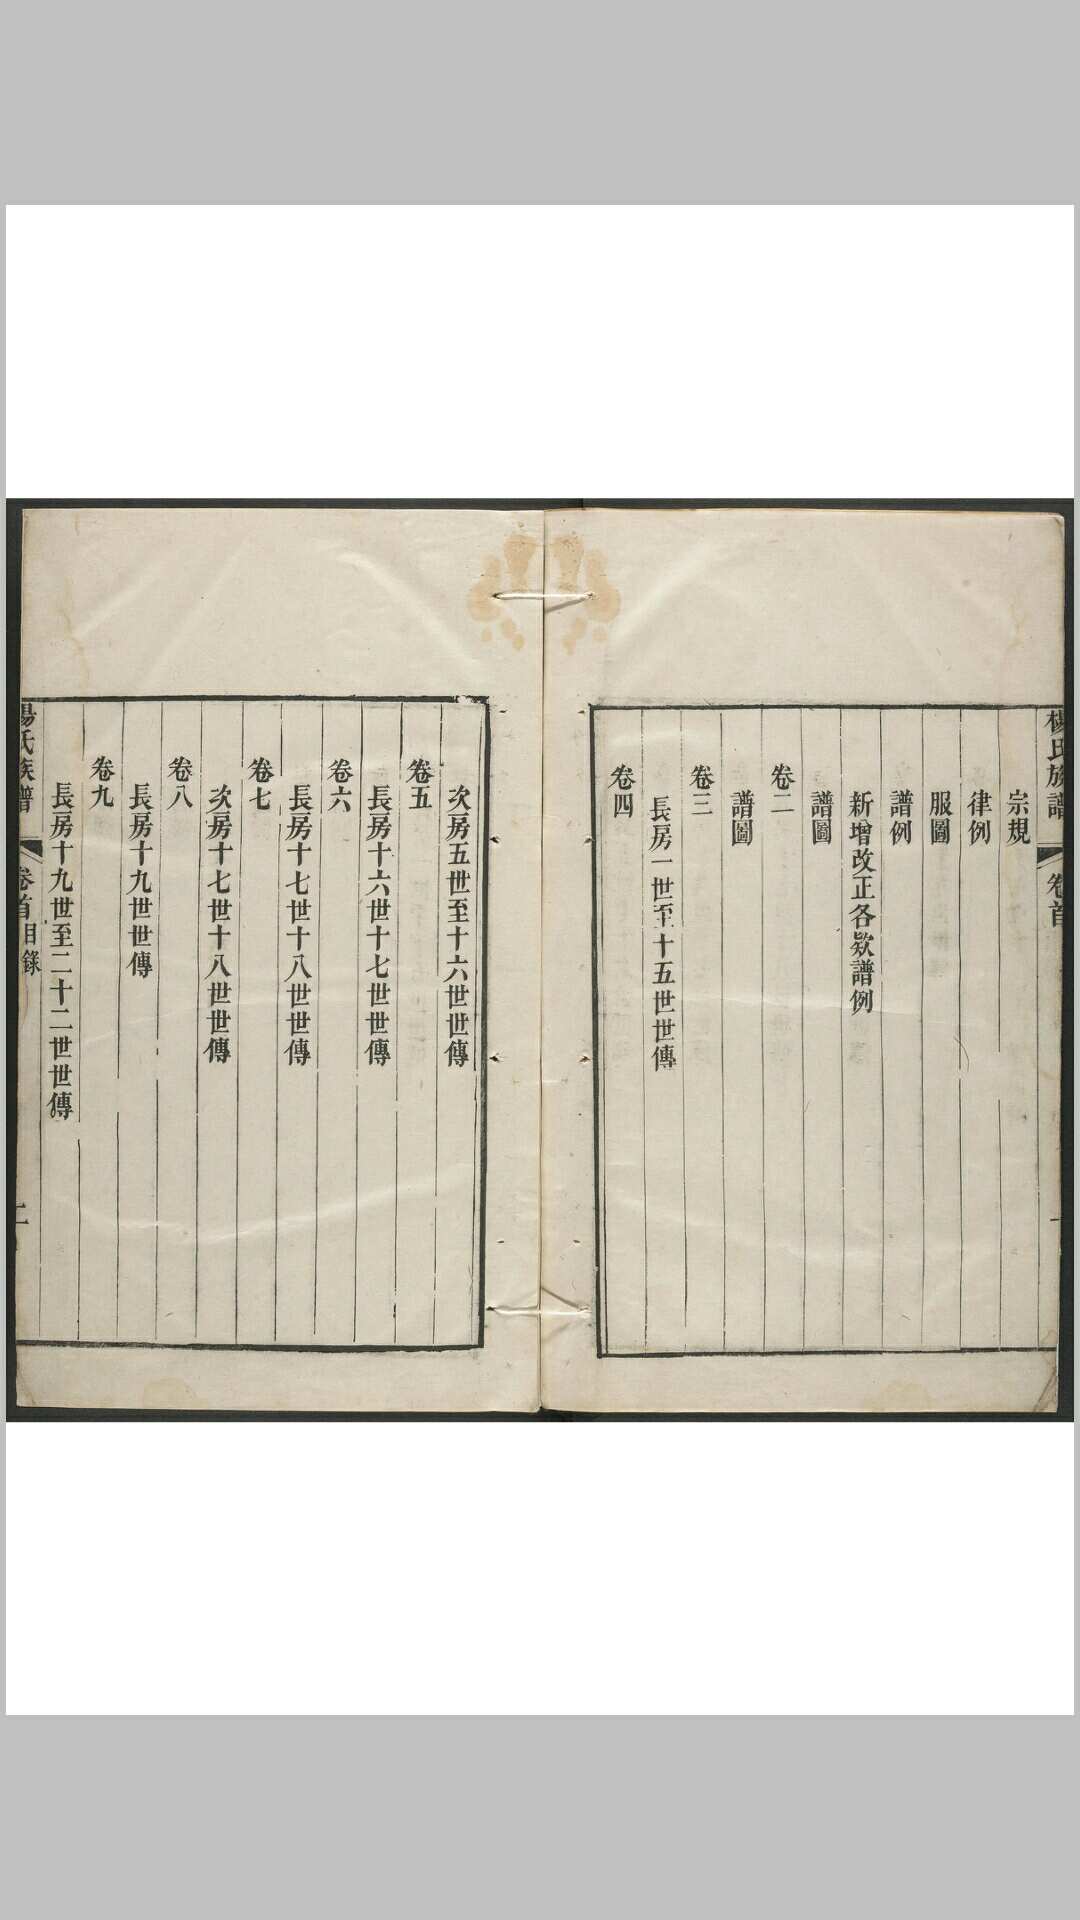 楊氏族譜 卷首
宗規
律例
服圖
譜例
新增改正各欵譜例
譜圖
卷二
譜圖
卷三
長房一世至十五世世傳
卷四
次房五世至十六世世傳
卷五
長房十六世十七世世傳
卷六
長房十七世十八世世傳
卷七
次房十七世十八世世傳
卷八
長房十九世世傳
卷九
長房十九世至二十二世世傳
楊氏族譜 卷首目錄 二